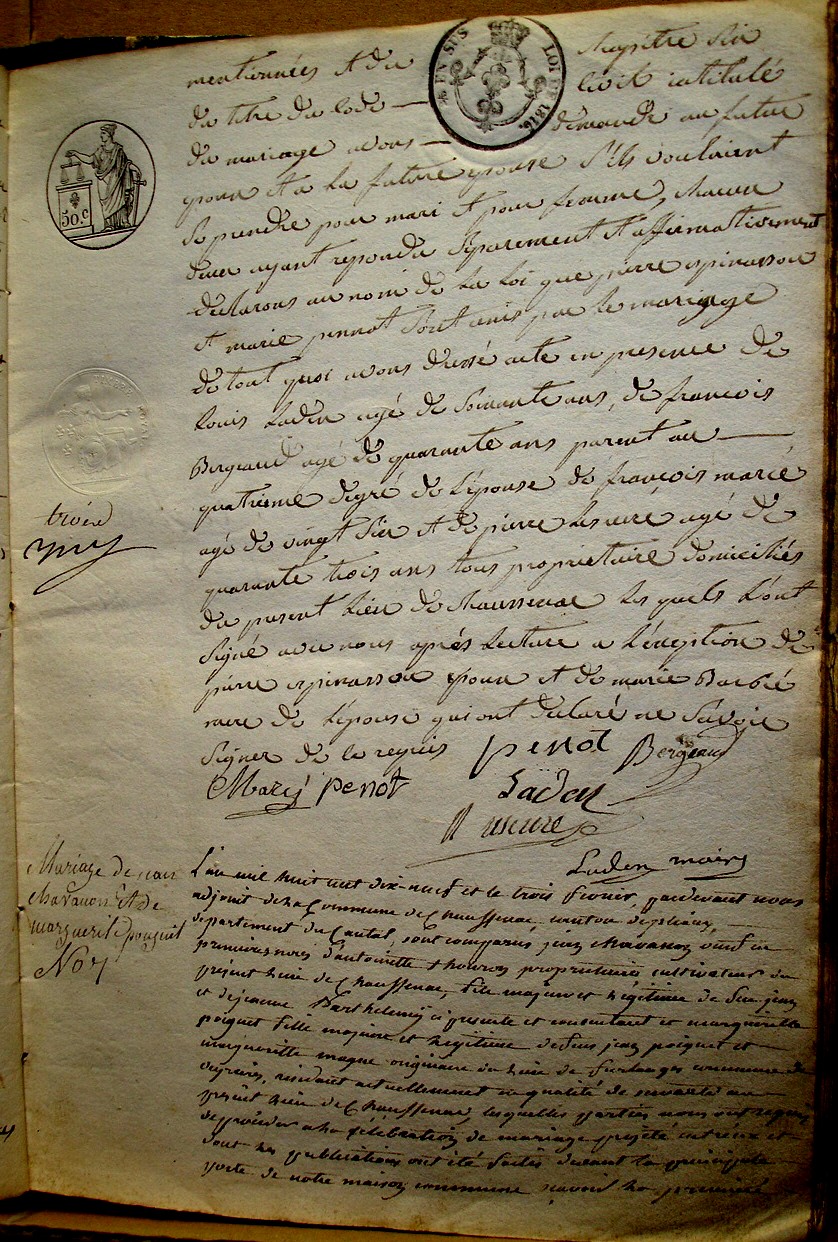 EN SUS LOI DE 1816.
50.c
mentionnées et du chapitre six
du titre du code — civil intitulé
du mariage avons — demandé au futur
epoux et a la future epouse s'ils vouloient
se prendre pour mari et pour femme, chacun
deux ayant repondu séparement et affirmativement
declarons au nom de la loi que pierre espinassou
et marie pennot sont unis par le mariage
de tout quoi avons dressé acte en presence de
louis Laden agé de soixante ans, de françois
Bergeaud agé de quarante ans parent au —
quatrieme degré de l'épouse de françois marcé
agé de vingt six et de pierre agé de
quarante trois ans tous proprietaire domiciliés
du present lieu de chaussenac les quels l'ont
signé avec nous aprés lecture a l'exeption de
pierre espinassou epoux et de marie Barbé
mere de l'épouse qui ont declaré ne savoir
signer de ce requis penot Bergeaud
penot Laden
Laden maire
Mariage de jean
chavanon et de
marguerite pouguit
No 4
L'an mil huit cent dix-neuf et le trois fevrier, pardevant nous
adjoint de la Commune de Chaussenac, canton de pleaux,
departement du Cantal, sont comparus jean chavanon veuf en
premieres noces d'antoinette proprietaire cultivateur du
présent lieu de Chaussenac, fils majeur et légitime de feu jean
et de jeanne Barthelemy ci presente et consentant et marguerite
poiguet fille majeure et legitime de feus jean poiguet et
marguerite magne originaire du lieu de commune de
residant actuellement en qualité de servante au
présent lieu de Chaussenac, lesquelles parties nous ont requis
de procéder a la célébration de mariage projeté entreux et
dont les publications ont été faites devant la principale
porte de notre maison commune savoir la premiere